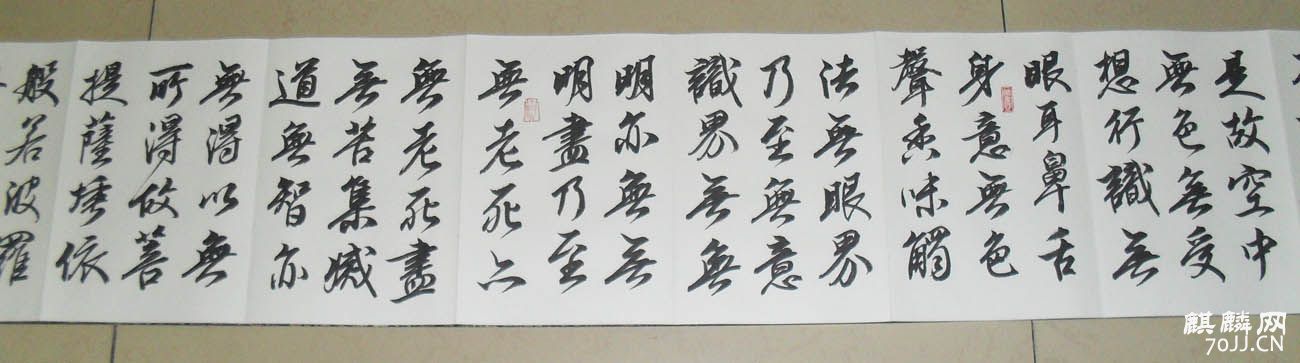 是故空中
無色無受
想行識無
眼耳鼻舌
身意無色
聲香味觸
法無眼界
乃至無意
識界無無
明亦無無
明盡乃至
無老死亦
無老死盡
無苦集滅
道無智亦
無得以無
所得故菩
提薩埵依
般若波羅
麒麟网
70JJ.CN